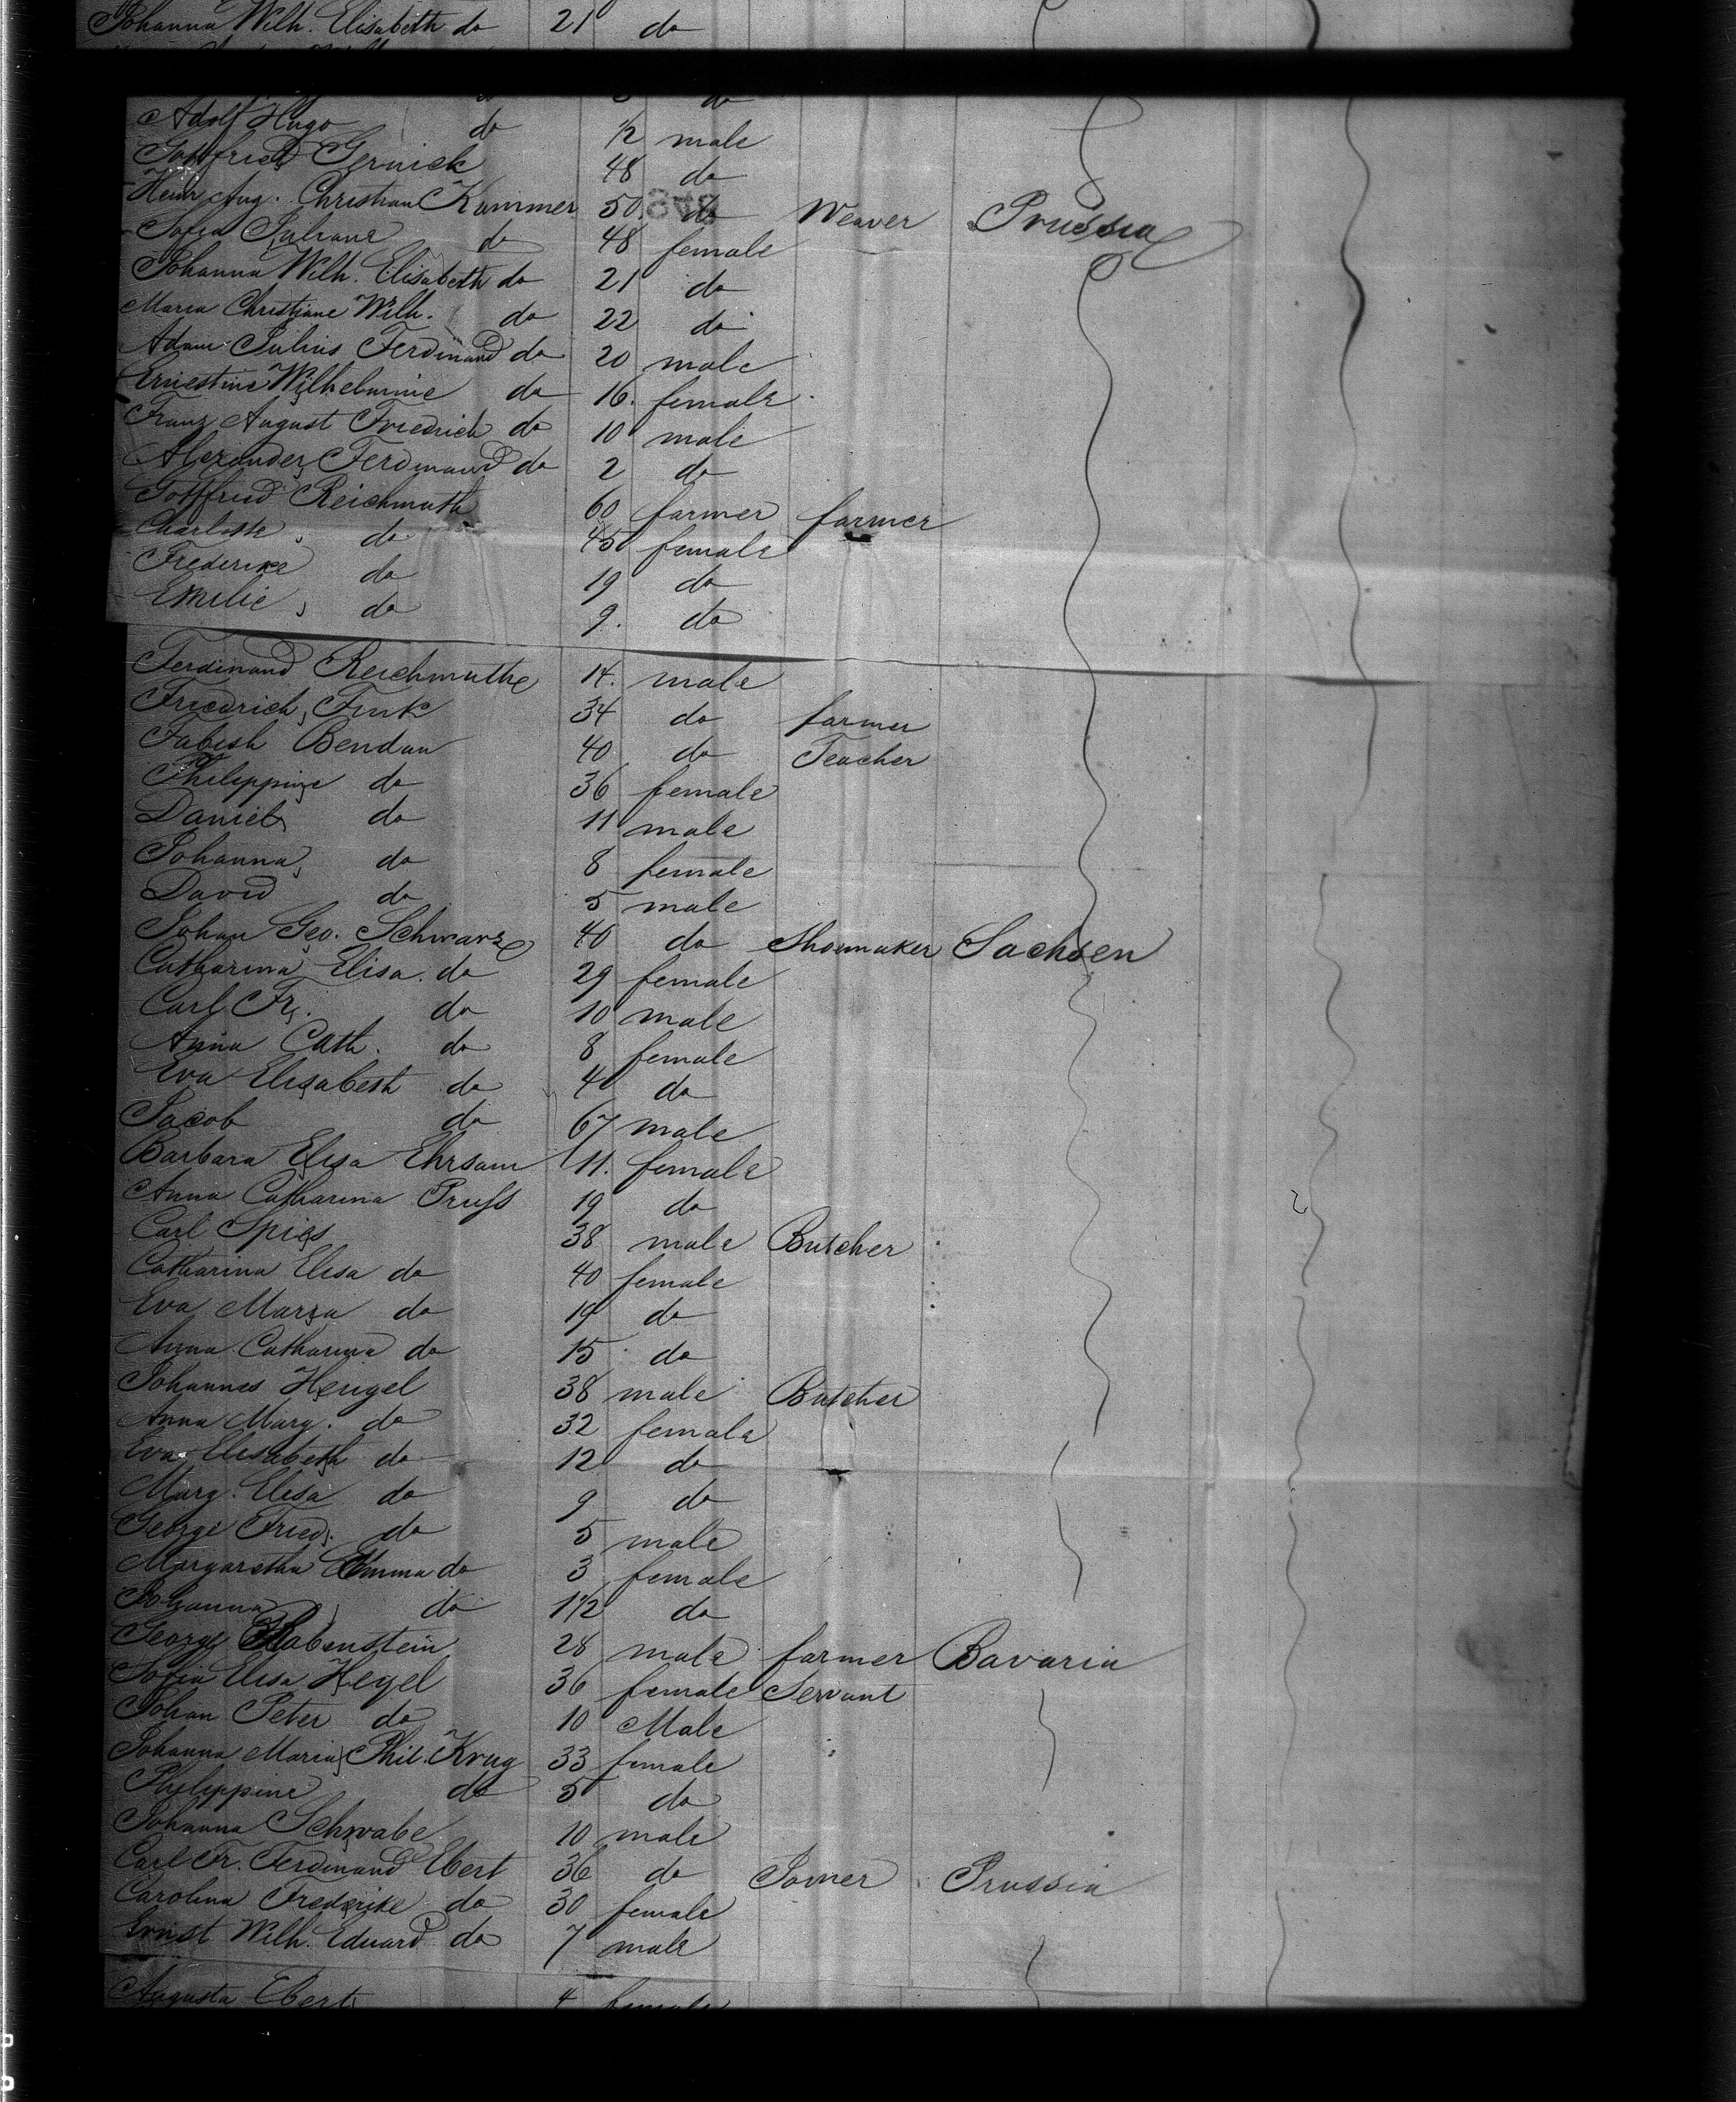 Johanna Wilh. Elisabeth do 21 do
do
Adolf Hugo do 1/2 male
Gottfried Gernick 48 do
Heinr Aug. Christian Kammer 50 do Weaver Prussia
Sofia Juliane do 48 female
Johanna Wilh. Elisabeth do 21 do
Maria Christiane Wilh. do 22 do
Adam Julius Ferdinand do 20 male
Ernestine Wilhelmine do 16. female
Franz August Friedrich do 10 male
Alexander Ferdinand do 2 do
Gottfried Reichmuth 60 farmer farmer
Charlotte do 45 female
Frederike do 19 do
Emilie, do 9. do
Ferdinand Reichmuthe 14. male
Friedrich Funk 34 do farmer
Tabish Bendau 40 do Teacher
Philippine do 36 female
Daniel do 11 male
Johanna do 8 female
David do 5 male
Johan Geo. Schwarz 40 do Shoemaker Sachsen
Catharina Elisa. do 29 female
Carl Fr. do 10 male
Anna Cath. do 8 female
Eva Elisabeth do 4 do
Jacob do 67 male
Barbara Elisa Ehrsam 11. female
Anna Catharina Pruß 19 do
Carl Spies 38 male Butcher
Catharina Elisa do 40 female
Eva Maria do 19 do
Anna Catharina do 15 do
Johannes Hengel 38 male Butcher
Anna Marg. do 32 female
Eva Elisabeth do 12 do
Marg. Elisa do 9 do
George Fried. do 5 male
Margaretha Emma do 3 female
Johanna do 1 1/2 do
George Rabenstein 28 male farmer Bavaria
Sofia Elisa Hegel 36 female Servant
Johan Peter do 10 Male
Johanna Maria Phil. Krug 33 female
Philippine do 5 do
Johanna Schwabe 10 male
Carl Fr. Ferdinand Ebert 36 do Joiner Prussia
Carolina Frederike do 30 female
Ernst Wilh. Eduard do 7 male
Augusta Ebert 4 female